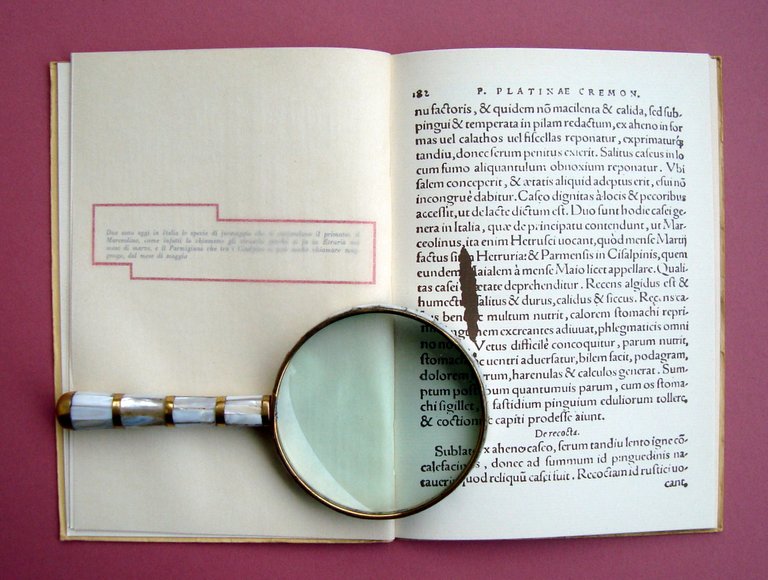 Due sono oggi in Italia le specie di formaggio che si contendono il primato: il
Marzolino, come infatti lo chiamano gli Etruschi perchè si fa in Etruria nel
mese di marzo, e il Parmigiano che tra i Cisalpini si può anche chiamare mag-
gengo, dal mese di maggio
182 P. PLATINAE CREMON.
nu factoris, & quidem nõ macilenta & calida, sed sub-
pingui & temperata in pilam redactum, ex aheno in for
mas uel calathos uel fiscellas reponatur, exprimaturq́;
tandiu, donec serum penitus exierit. Salitus caseus in lo
cum fumo aliquantulum obnoxium reponatur. Vbi
salem conceperit, & ætatis aliquid adeptus erit, esui nõ
incongruè dabitur. Caseo dignitas à locis & pecoribus
accessit, ut de lacte dictum est. Duo sunt hodie casei ge-
nera in Italia, quæ de principatu contendunt, ut Mar-
ceolinus, ita enim Hetrusci uocant, quòd mense Martij
factus sit in Hetruria: & Parmensis in Cisalpinis, quem
eundem Maialem à mense Maio licet appellare. Quali-
tas casei ætate deprehenditur. Recens algidus est &
humectus, salitus & durus, calidus & siccus. Recens ca-
seus bene multum nutrit, calorem stomachi repri-
mit, sanguinem excreantes adiuuat, phlegmaticis omni
no no Vetus difficilè concoquitur, parum nutrit,
stomacho ac uentri aduersatur, bilem facit, podagram,
dolorem rerum, harenulas & calculos generat. Sum-
ptum post cibum quantumuis parum, cum os stoma-
chi sigillet, & fastidium pinguium eduliorum tollere,
& coctioni & capiti prodesse aiunt.
De recocta.
Sublato ex aheno caseo, serum tandiu lento igne cõ-
calefacimus, donec ad summum id pinguedinis na-
tauerit, quod reliquũ casei fuit. Recoctam id rustici uo-
cant,